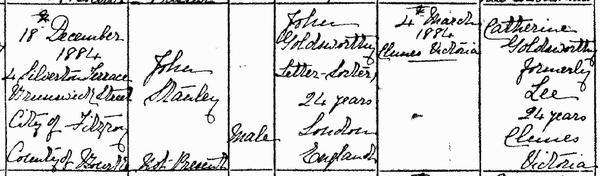 18th December
1884
4 Silverton Terrace
Brunswick Street
City of Fitzroy
County of Bourke
John
Stanley
Not Present
Male
John
Goldsworthy
Letter-Sorter
24 years
London
England
4th March
1884
Clunes Victoria
Catherine
Goldsworthy
formerly
Lee
24 years
Clunes
Victoria